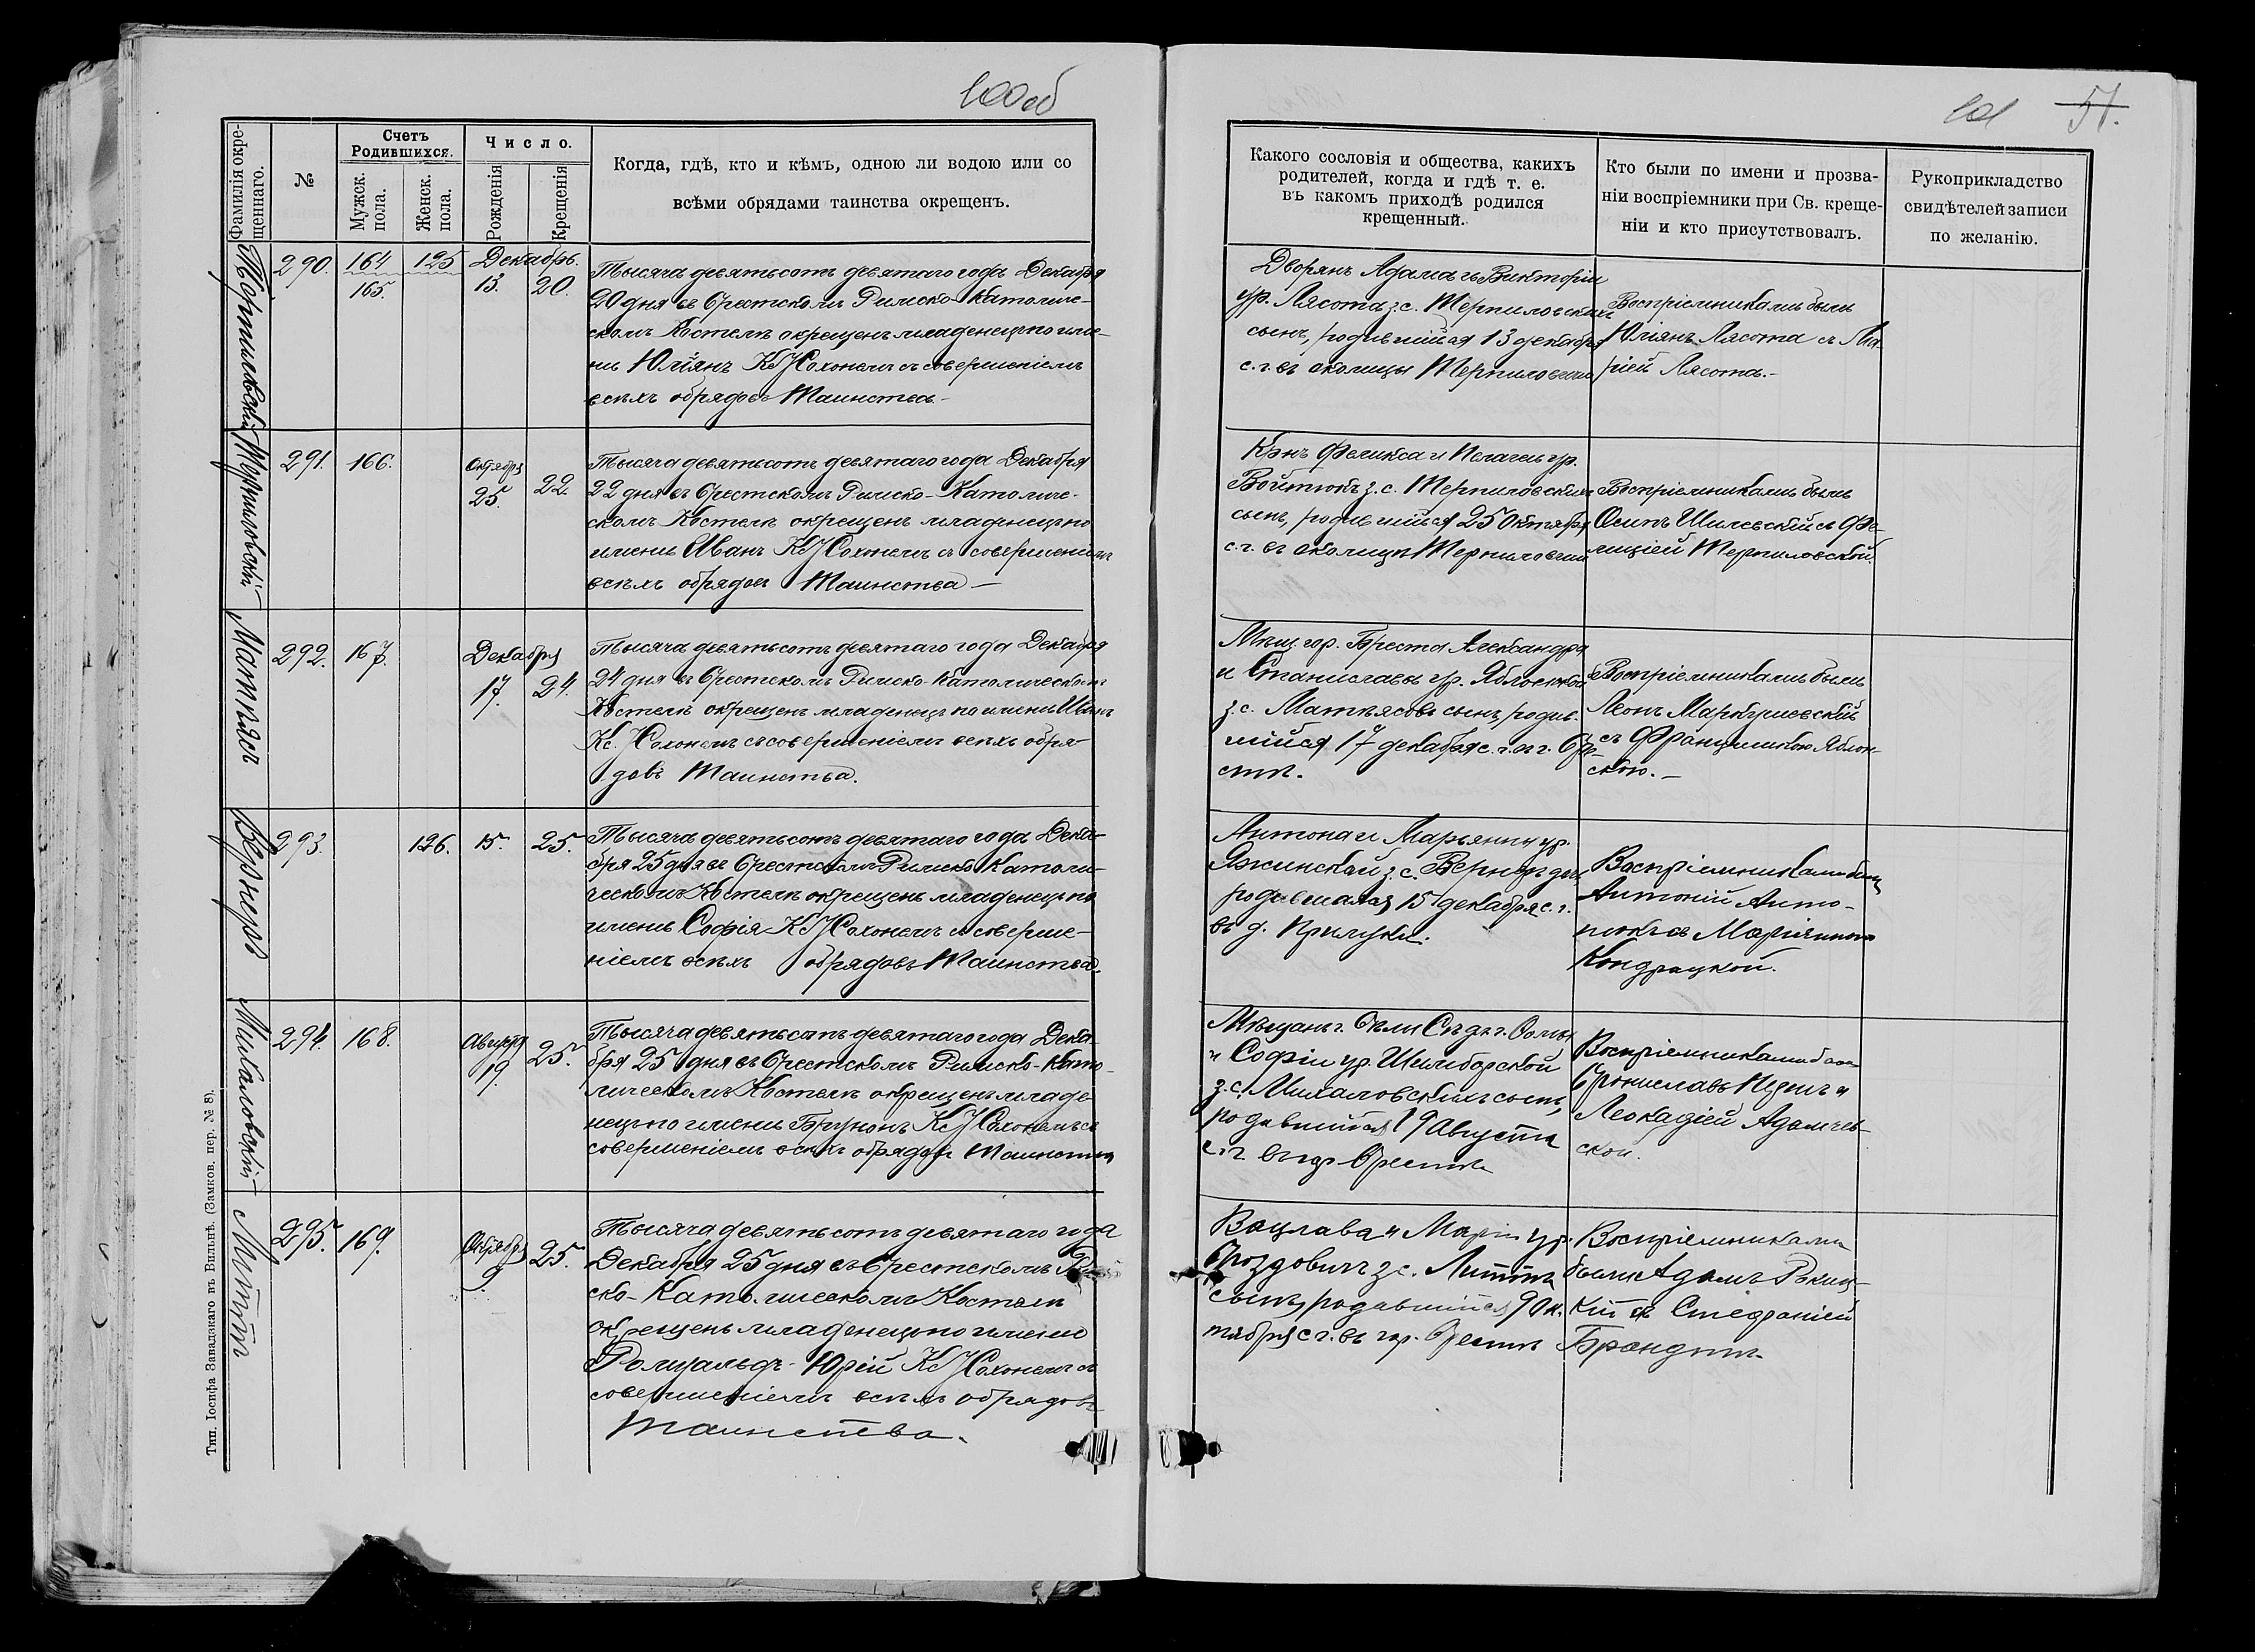 100 об
Фамилія окре-
щеннаго.
№
Счетъ
Родившихся.
Мужск.
пола.
Женск.
пола.
Число.
Рожденія
Крещенія
Когда, гдѣ, кто и кѣмъ, одною ли водою или со
всѣми обрядами таинства окрещенъ.
290.
164
165.
125
Декабрь.
13.
20.
Тысяча девятьсотъ девятаго года Декабря
20 дня въ Брестскомъ Римско-Католиче-
скомъ Костелѣ окрещенъ младенецъ по име-
ни Юліянъ
съ совершеніемъ
всѣхъ обрядовъ Таинства.
Терпиловскій
291.
166.
Октября
25.
22.
Тысяча девятьсотъ девятаго года Декабря
22 дня въ Брестскомъ Римско-Католиче-
скомъ Костелѣ окрещенъ младенецъ по
имени Иванъ
съ совершеніемъ
всѣхъ обрядовъ Таинства —
Матѣясъ
292.
167.
Декабря
17.
24.
Тысяча девятьсотъ девятаго года Декабря
24 дня въ Брестскомъ Римско-Католическомъ
Костелѣ окрещенъ младенецъ по имени Иванъ
Кс.
съ совершеніемъ всѣхъ обря-
довъ Таинства.
Вернеръ
293.
126.
15.
25.
Тысяча девятьсотъ девятаго года Дека-
бря 25 дня въ Брестскомъ Римско-Католи-
ческомъ Костелѣ окрещенъ младенецъ по
имени Софія
съ соверше-
ніемъ всѣхъ обрядовъ Таинства.
Михаловскій
294.
168.
Августа
19.
25.
Тысяча девятьсотъ девятаго года Дека-
бря 25 дня въ Брестскомъ Римско-Като-
лическомъ Костелѣ окрещенъ младе-
нецъ по имени Брунонъ
съ
совершеніемъ всѣхъ обрядовъ Таинства
Литтъ
295.
169.
Октября
9.
25.
Тысяча девятьсотъ девятаго года
Декабря 25 дня въ Брестскомъ Рим-
ско-Католическомъ Костелѣ
окрещенъ младенецъ по имени
Ромуальдъ-Юрій
съ
совершеніемъ всѣхъ обрядовъ
Таинства.
Тип. Іосифа Завадзкаго въ Вильнѣ. (Замков. пер. № 8).
101
51.
Какого сословія и общества, какихъ
родителей, когда и гдѣ т. е.
въ какомъ приходѣ родился
крещенный.
Кто были по имени и прозва-
ніи воспріемники при Св. креще-
ніи и кто присутствовалъ.
Рукоприкладство
свидѣтелей записи
по желанію.
Дворянъ Адама и Викторіи
ур. Лясота з. с. Терпиловскихъ
сынъ, родившійся 13 декабря
с. г. въ околицы Терпиловичи
Воспріемниками были
Юліянъ Лясота съ Ма-
ріей Лясота.-
Крнъ Феликса и Пелагеи ур.
Войтюкъ з. с. Терпиловскихъ
сынъ, родившійся 25 Октября
с. г. въ околицѣ Терпиловичи
Воспріемниками были
Осипъ Шилевскій съ Фе-
лиціей Терпиловской.
Мѣщ. гор. Бреста Александра
и Станиславы ур. Яблонской
з. с. Матѣясовъ сынъ, родив-
шійся 17 декабря с. г. въ г. Бре-
стѣ.
Воспріемниками были
Леонъ
съ Францишкою Яблон-
скою. —
Антона и Марьянны ур.
з. с. Вернеръ дочь
родившаяся 15 декабря с. г.
въ д. Прилуки.
Воспріемниками были
Антоній Анто-
нюкъ съ Маріянною
Кондрацкой.
и Софіи ур.
з. с. Михаловскихъ сынъ,
родившійся 19 Августа
с. г. въ гор. Брестѣ
Воспріемниками были
Брониславъ
и
Леокадіей Адамчев-
ской.
Вацлава и Маріи ур.
з. с. Литтъ
сынъ, родившійся 9 Ок-
тября с. г. въ гор. Брестѣ
Воспріемниками
были Адамъ Ракиц-
кій съ Стефаніей
Брандтъ.